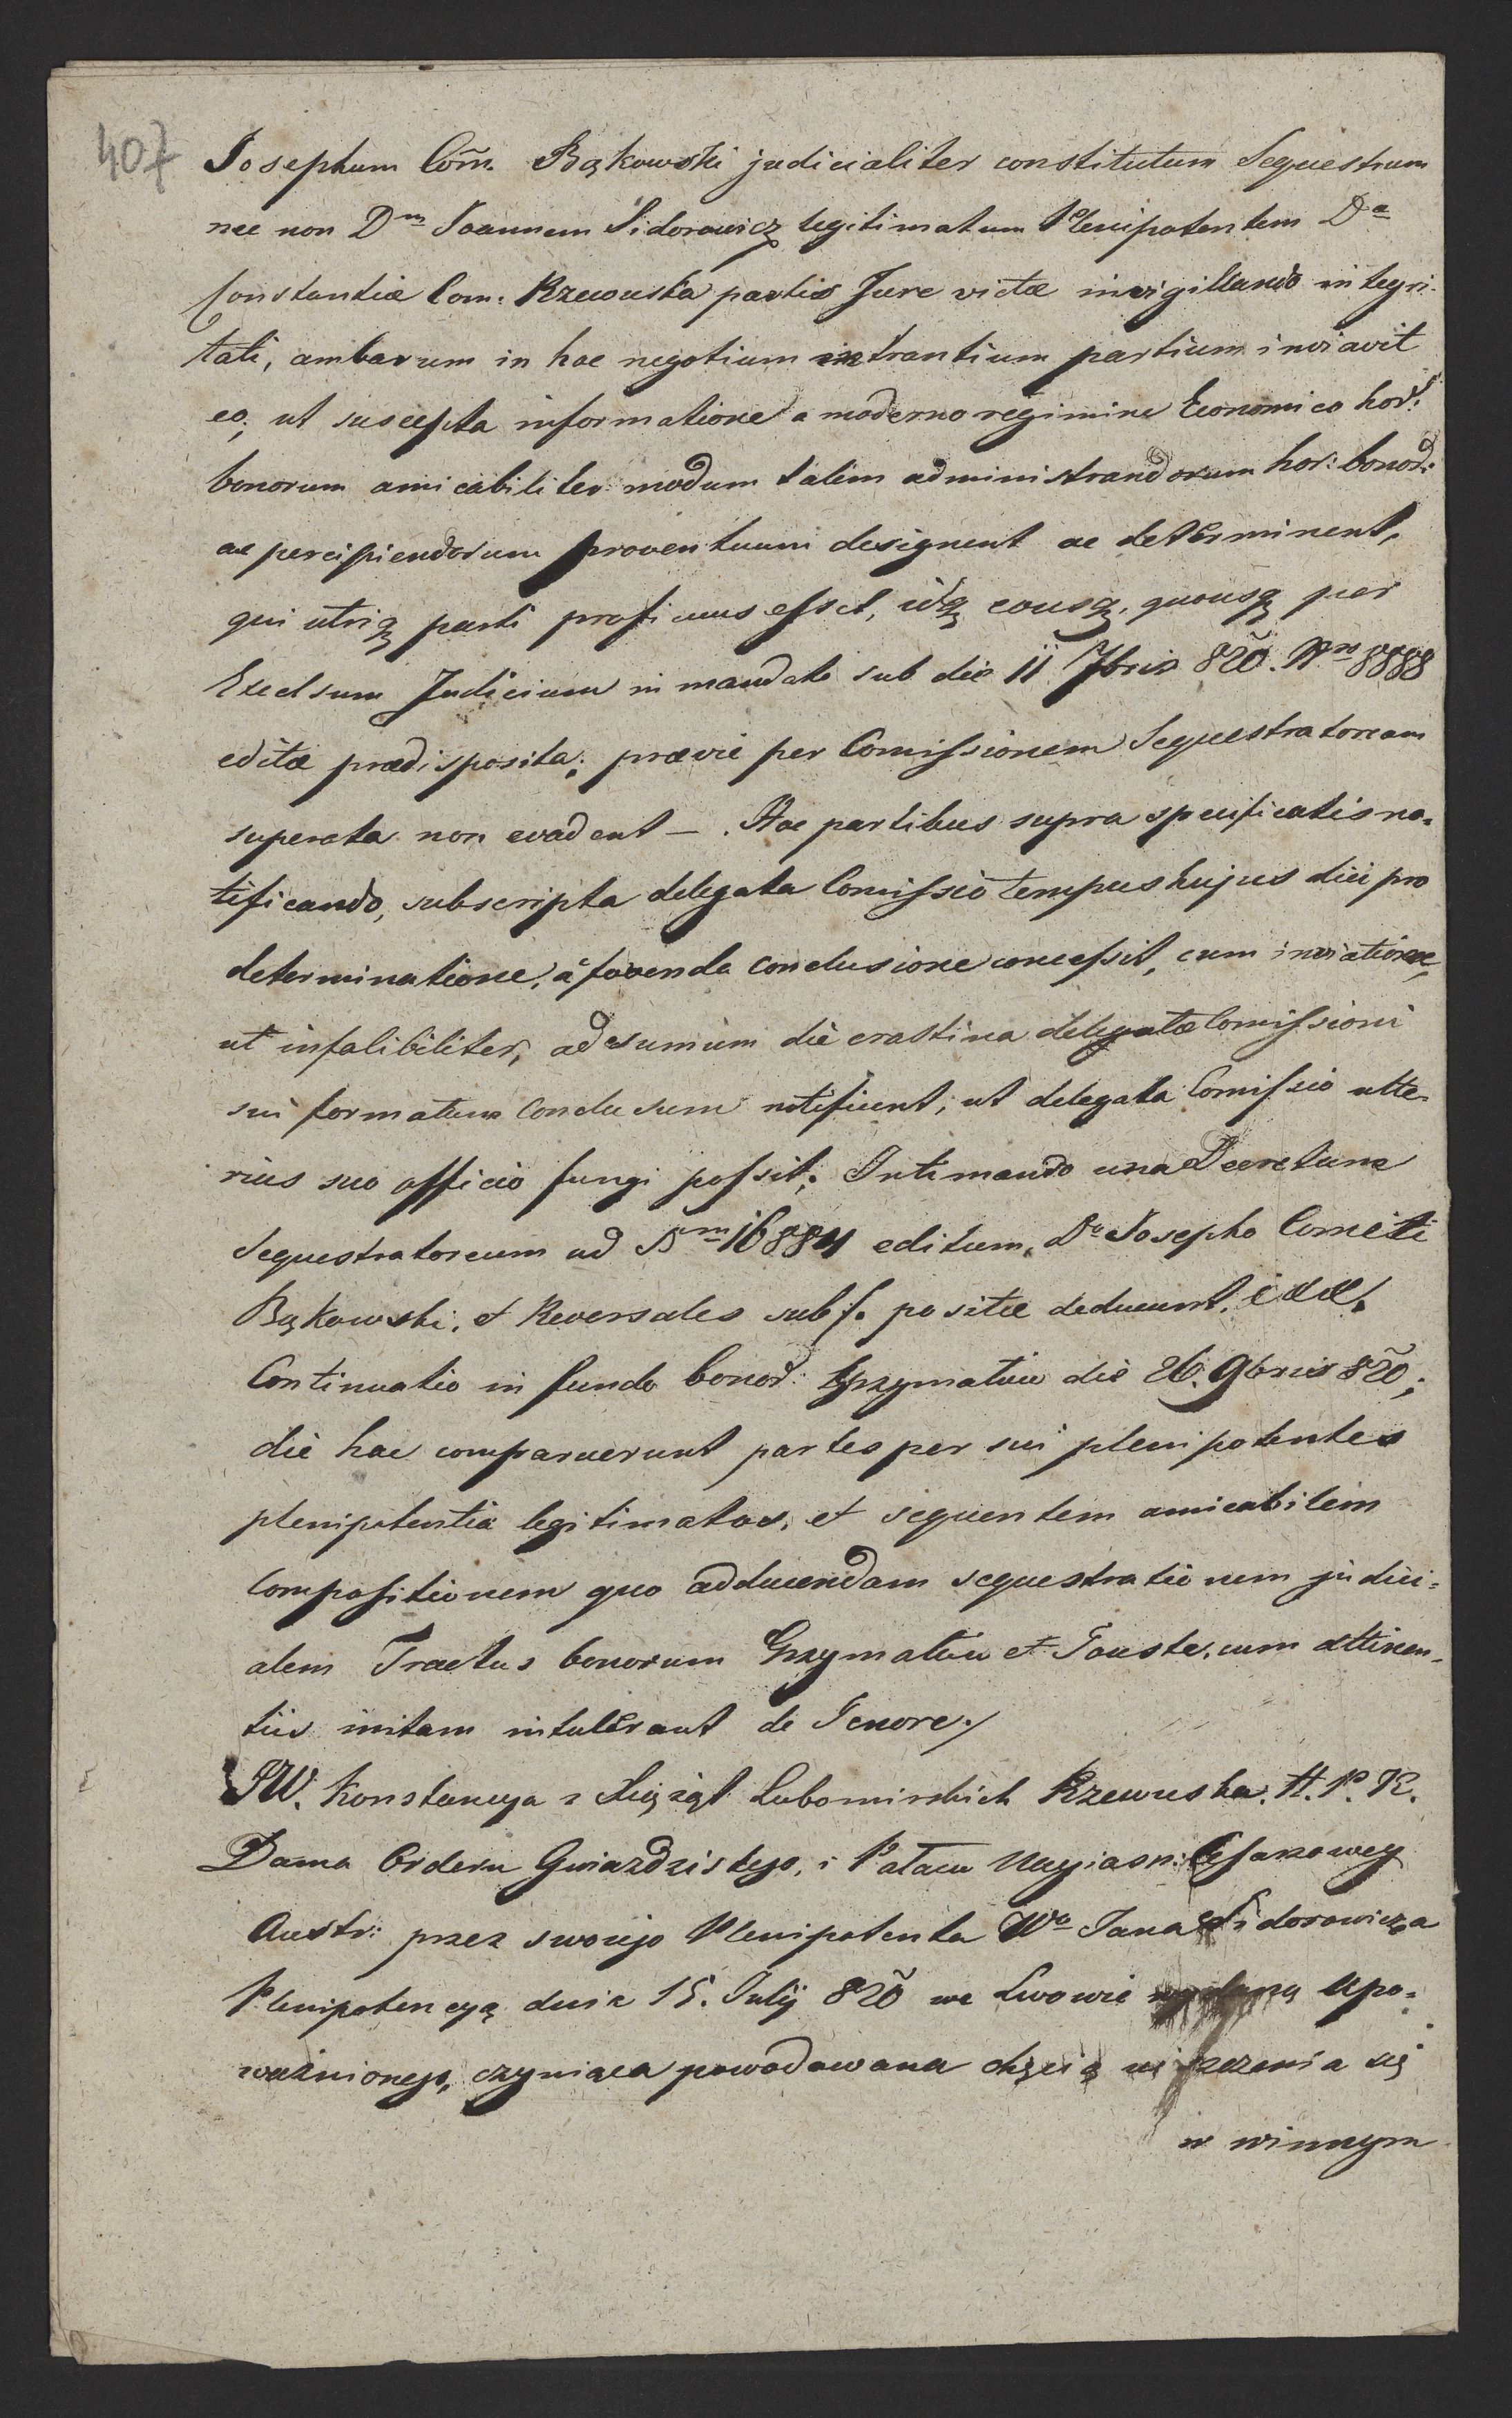 407
Josephum Com̃. Bąkowski judicialiter constitutum Sequestrum
nec non Dm Joannem Sidorowicz legitimatum Plenipotentem Dae
Constantiæ Com: Rzewuska partis Jure victæ invigillando integri-
tati, ambarum in hoc negotium intrantium partium inviavit
eo; ut suscepta informatione a moderno regimine Economico hor:
bonorum amicabiliter modum talem administrandorum hor: bonor:
ac percipiendorum proventuum designent ac determinent,
qui utriq parti proficuus esset, idq eousq, quousq per
Excelsum Judicium in mandato sub die 11 7bris 820. Nro 8888
edito prædisposita; prævie per Comissionem Sequestratoream
superata non evadent – . Hoc partibus supra specificatis no-
tificando, subscripta delegata Comissio tempus hujus diei pro
determinatione, a fovenda conclusione concessit, cum inviatione,
ut infalibiliter, ad sumum die crastina delegatæ Comissioni
sui formatum Conclusum notificent, ut delegata Comissio ulte-
rius suo officio fungi possit; Intimando una Decretum
Sequestratoreum ad Nm 16884 editum, Do Josepho Comiti
Bąkowski, et Reversales sub ƒ. positæ deducunt.
Continuatio in fundo bonor: Grzymałów die 26. 9bris 820;
die hac comparuerunt partes per sui plenipotentes
plenipotentia legitimatos, et sequentem amicabilem
Compositionem quo adducendam sequestrationem judici-
alem Tractus bonorum Grzymałów et Touste, cum attinen-
tiis initam intulerunt de Tenore./
JW. Konstancya z Xiążąt Lubomirskich Rzewuska. H. P. K.
Dama Orderu Gwiazdzistego, i Pałacu Nayiasn: Cesarzowey
Austr: przez swoiego Plenipotenta Wo Jana Sidorowicza
Plenipotencyą dnia 15. Julij 820 we Lwowie wydaną upo-
ważnionego, czyniąca powodowana chęcią uiszczenia się
w winnym